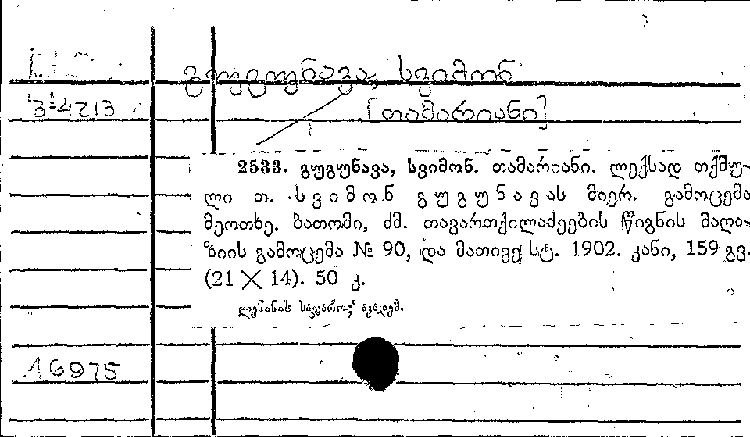 გუგუნავა, სვიმონ
34213
[თამარიანი]
2533. გუგუნავა, სვიმონ. თამარიანი. ლექსად თქმუ-
ლი თ. სვიმონ გუგუნავას მიერ. გამოცემა
მეოთხე. ბათომი, ძმ. თავართქილაძეების წიგნის მაღა-
ზიის გამოცემა № 90, და მათივე სტ. 1902. კანი, 159 გვ.
(21 × 14). 50 კ.
16975